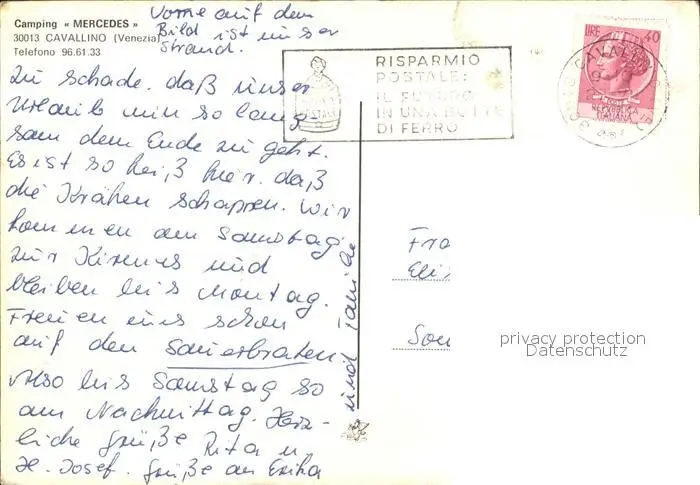 Camping « MERCEDES »
30013 CAVALLINO (Venezia)
Telefono 96.61.33
Vorne auf dem
Bild ist unser
Strand.
RISPARMIO
POSTALE:
IL FUTURO
IN UNA BOTTE
DI FERRO
LIRE 40
REPVBBLICA
ITALIANA
Zu schade, daß unser
Urlaub nun so lang-
sam dem Ende zu geht.
Es ist so heiß hier, daß
die Krähen schappen. Wir
kommen am Samstag
zur Kirmes und
bleiben bis Montag.
Freuen uns schon
auf den Sauerbraten.
Also bis Samstag so
am Nachmittag. Herz-
liche Grüße Rita u.
H. Josef. Grüße an Erika
und
Fra
Elis
Son
privacy protection
Datenschutz